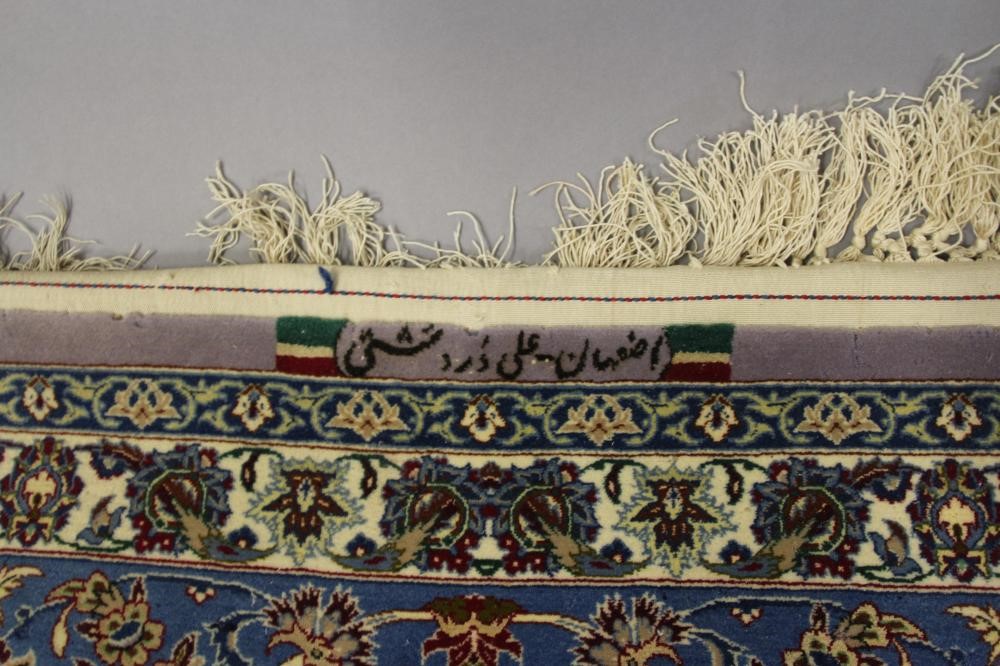 اصفهان - علی دردشتی